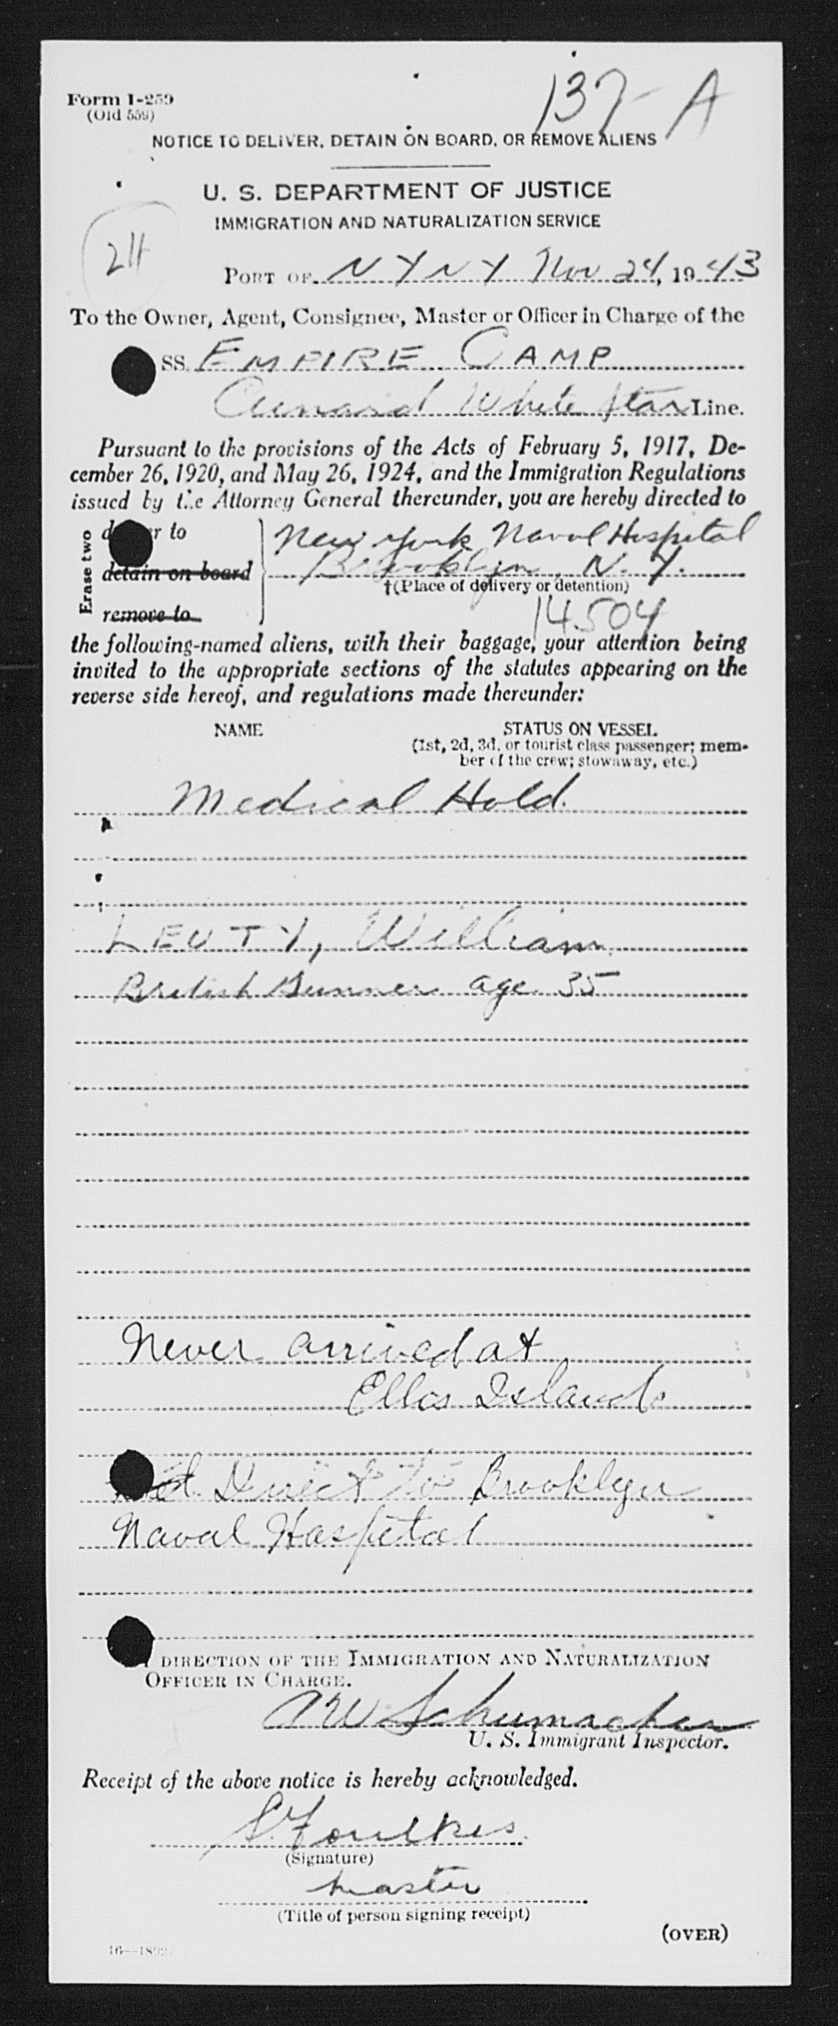 137-A
Form I-259
(Old 559)
NOTICE TO DELIVER, DETAIN ON BOARD, OR REMOVE ALIENS
U. S. DEPARTMENT OF JUSTICE
IMMIGRATION AND NATURALIZATION SERVICE
PORT OF N Y N Y Nov 24, 1943
To the Owner, Agent, Consignee, Master or Officer in Charge of the
SS. EMPIRE CAMP
Cunard White Star Line.
Pursuant to the provisions of the Acts of February 5, 1917, De-
cember 26, 1920, and May 26, 1924, and the Immigration Regulations
issued by the Attorney General thereunder, you are hereby directed to
Erase two
to
detain on board
remove to
New York Naval Hospital
Brooklyn, N. Y.
†(Place of delivery or detention)
14504
the following-named aliens, with their baggage, your attention being
invited to the appropriate sections of the statutes appearing on the
reverse side hereof, and regulations made thereunder:
NAME STATUS ON VESSEL
(1st, 2d, 3d, or tourist class passenger; mem-
ber of the crew; stowaway, etc.)
Medical Hold.
LEUTY, William
British Gunner age 35
Never arrived at
Ellis Island
Direct to Brooklyn
Naval Hospital
DIRECTION OF THE IMMIGRATION AND NATURALIZATION
OFFICER IN CHARGE.
Schumacher
U. S. Immigrant Inspector.
Receipt of the above notice is hereby acknowledged.
S. Foulkes
(Signature)
Master
(Title of person signing receipt)
(OVER)